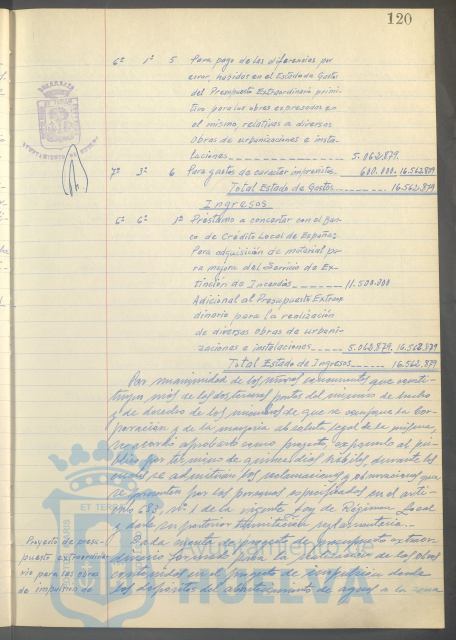 120
6º 1º 5 Para pago de las diferencias, por
error, habidas en el Estado de Gastos
del Presupuesto Extraordinario primi-
tivo para las obras expresadas en
el mismo, relativas a diversas
obras de urbanizaciones e insta-
laciones 5.062.879.
7º 3º 6 Para gastos de caracter imprevistos 600.000. 16.562.879
Total Estado de Gastos 16.562.879
Ingresos
6º 6º 1º Préstamo a concertar con el Ban-
co de Crédito Local de España:
Para adquisición de material pa-
ra mejora del Servicio de Ex-
tinción de Incendios 11.500.000
Adicional al Presupuesto Extraor-
dinario para la realización
de diversas obras de urbani-
zaciones e instalaciones 5.062.879. 16.562.879
Total Estado de Ingresos 16.562.879
Por unanimidad de los señores concurrentes que consti-
tuyen más de las dos terceras partes del número de hecho
y de derecho de los miembros de que se compone la Cor-
poración y de la mayoria absoluta legal de la misma,
se acordó aprobarlo como proyecto, exponerlo al pú-
blico por término de quince dias hábiles, durante los
cuales se admitirán las reclamaciones y observaciones que
se presenten por las personas especificadas en el arti-
culo 683 Nº 1 de la vigente Ley de Régimen Local
y darle su posterior tramitación reglamentaria.
Proyecto de presu-
puesto extraordina-
rio para las obras
de impulsión de
Dada cuenta de proyecto de presupuesto extraor-
dinario formado para la realización de las obras
contenidas en el proyecto de impulsión desde
los depósitos del abastecimiento de aguas a la zona
Ayuntamiento de
HUELVA